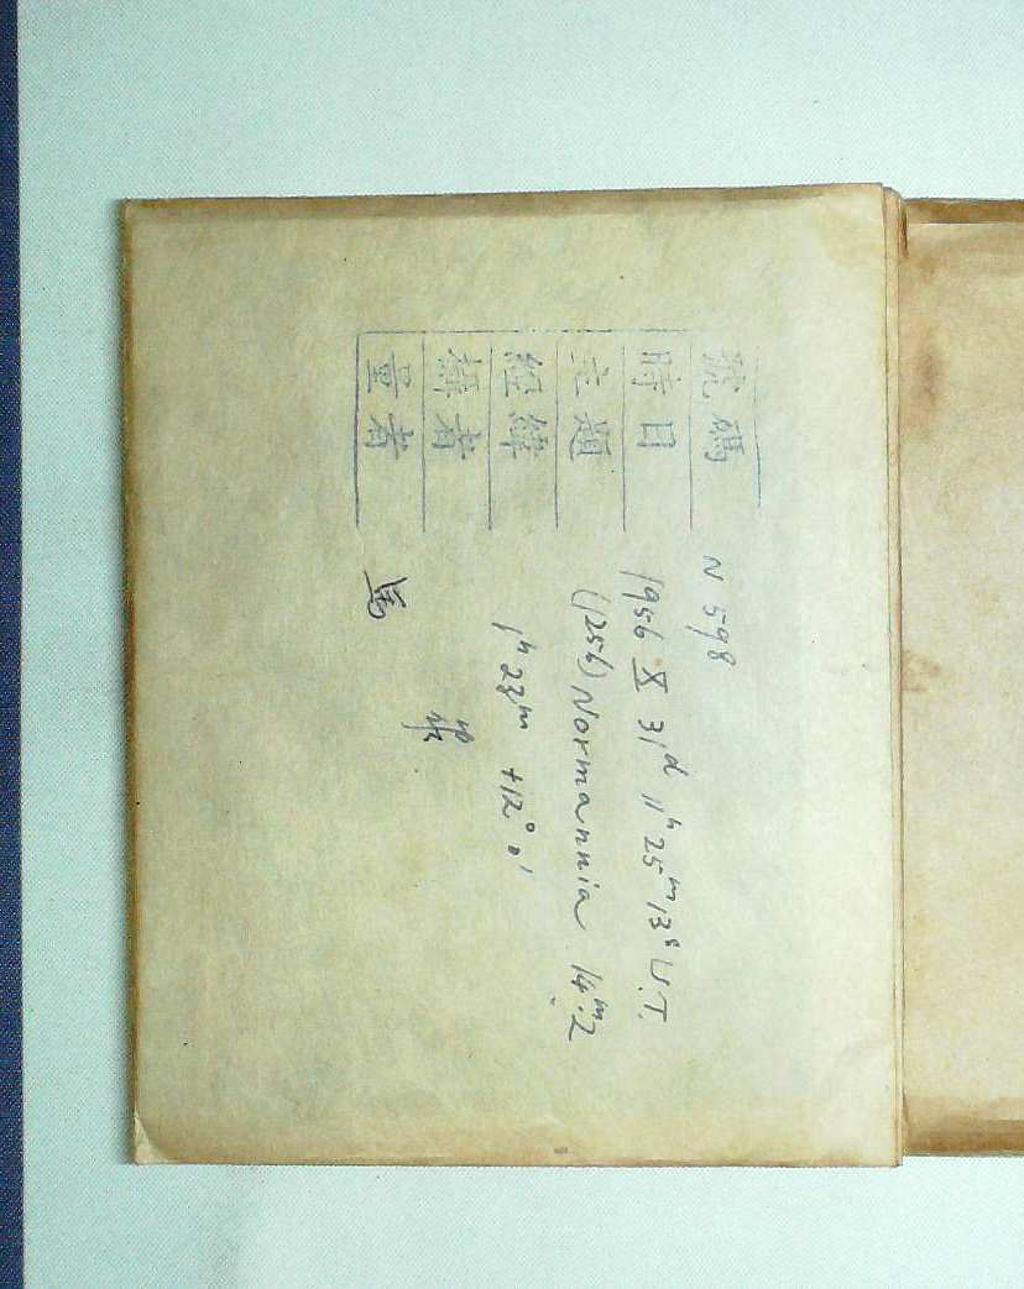 號碼 N 598
時日 1956 X 31ᵈ 11ʰ 25ᵐ 13ˢ U.T.
主題 (1256) Normannia 14ᵐ.2
經緯 1ʰ 23ᵐ +12° 0′
攝者
量者 馬